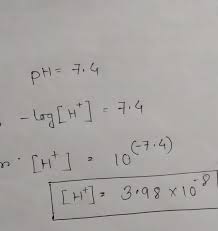 pH = 7.4
-log[H⁺] = 7.4
[H⁺] = 10^(-7.4)
[H⁺] = 3.98 × 10⁻⁸